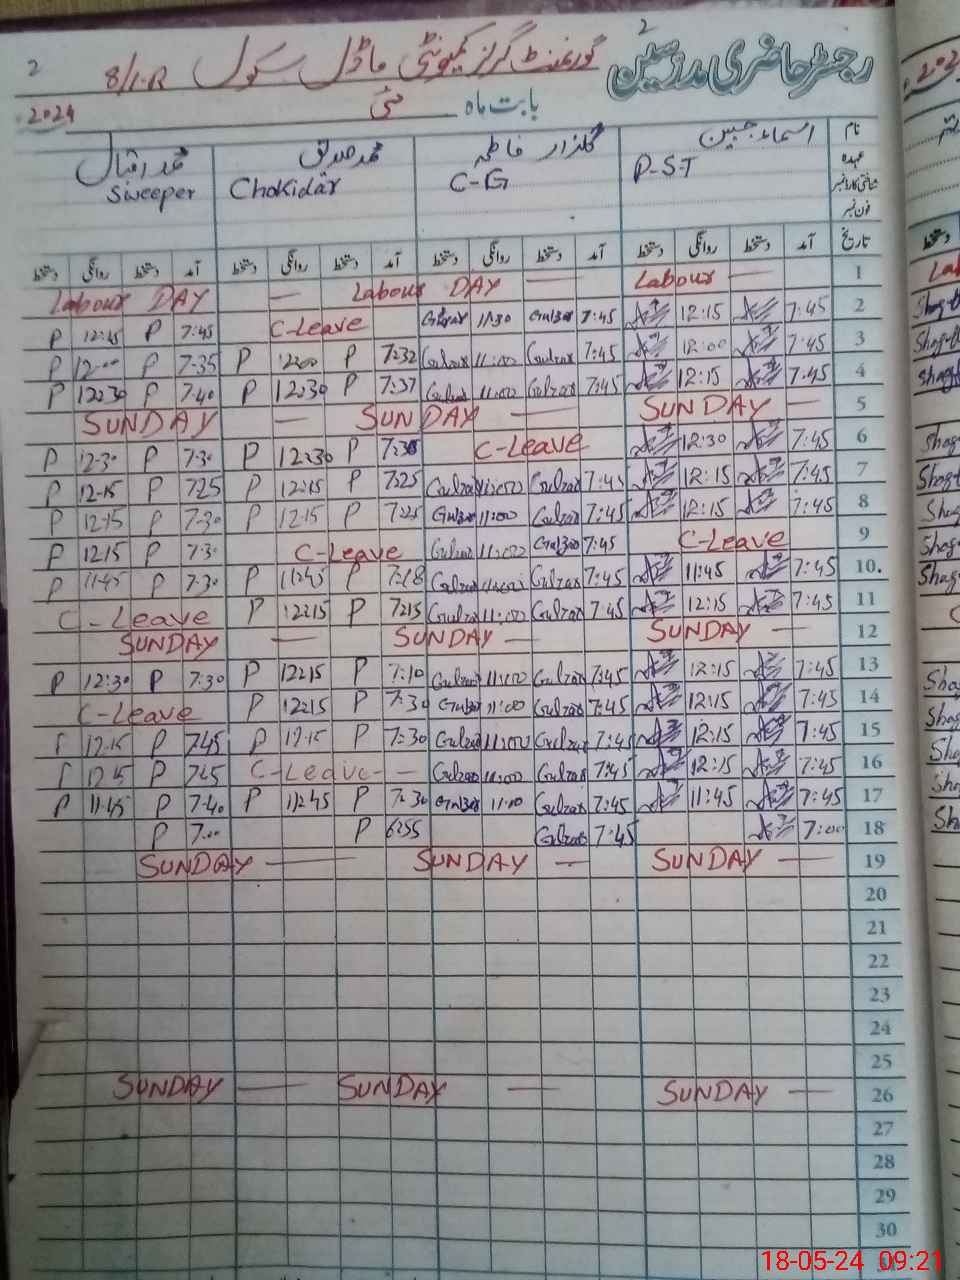 2
رجسٹر حاضری مدرسین
گورنمنٹ گرلز کمیونٹی ماڈل سکول 8/1-R 2
بابت ماہ مئی 2024
نام اسماء جبین گلزار فاطمہ محمد صدیق محمد اقبال
عہدہ P-S-T C-G Chokidar Sweeper
شناختی کارڈ نمبر
فون نمبر
تاریخ آمد دستخط روانگی دستخط آمد دستخط روانگی دستخط آمد دستخط روانگی دستخط آمد دستخط روانگی دستخط
Labour DAY — Labour DAY — Labour — 1
P 12:15 P 7:45 C-Leave Gulzar 11:30 Gulzar 7:45 12:15 7:45 2
P 12:00 P 7:35 P 12:00 P 7:32 Gulzar 11:00 Gulzar 7:45 12:00 7:45 3
P 12:30 P 7:40 P 12:30 P 7:37 Gulzar 11:00 Gulzar 7:45 12:15 7:45 4
SUNDAY — SUNDAY — SUNDAY — 5
P 12:30 P 7:30 P 12:30 P C-Leave 12:30 7:45 6
P 12-15 P 7:25 P 12:15 P 7:25 Gulzar Gulzar 7:45 12:15 7:45 7
P 12:15 P 7:30 P 12:15 P 7:25 Gulzar 11:00 Gulzar 7:45 12:15 7:45 8
P 12:15 P 7:30 C-Leave Gulzar 11:00 Gulzar 7:45 C-Leave 9
P 11:45 P 7:30 P 11:45 P 7:18 Gulzar Gulzar 7:45 11:45 7:45 10.
C-Leave P 12:15 P 7:15 Gulzar 11:00 Gulzar 7:45 12:15 7:45 11
SUNDAY — SUNDAY — SUNDAY — 12
P 12:30 P 7:30 P 12:15 P 7:10 Gulzar 11:00 Gulzar 7:45 12:15 7:45 13
C-Leave P 12:15 P 7:30 Gulzar 11:00 Gulzar 7:45 12:15 7:45 14
P 12:15 P 7:45 P 12:15 P 7:30 Gulzar 11:00 Gulzar 7:45 12:15 7:45 15
P 12:15 P 7:45 C-Leave — Gulzar 11:00 Gulzar 7:45 12:15 7:45 16
P 11:45 P 7:40 P 11:45 P 7:30 Gulzar 11:10 Gulzar 7:45 11:45 7:45 17
P 7:00 P 6:55 Gulzar 7:45 7:00 18
SUNDAY — SUNDAY — SUNDAY — 19
20
21
22
23
24
25
SUNDAY — SUNDAY — SUNDAY — 26
27
28
29
30
18-05-24 09:21